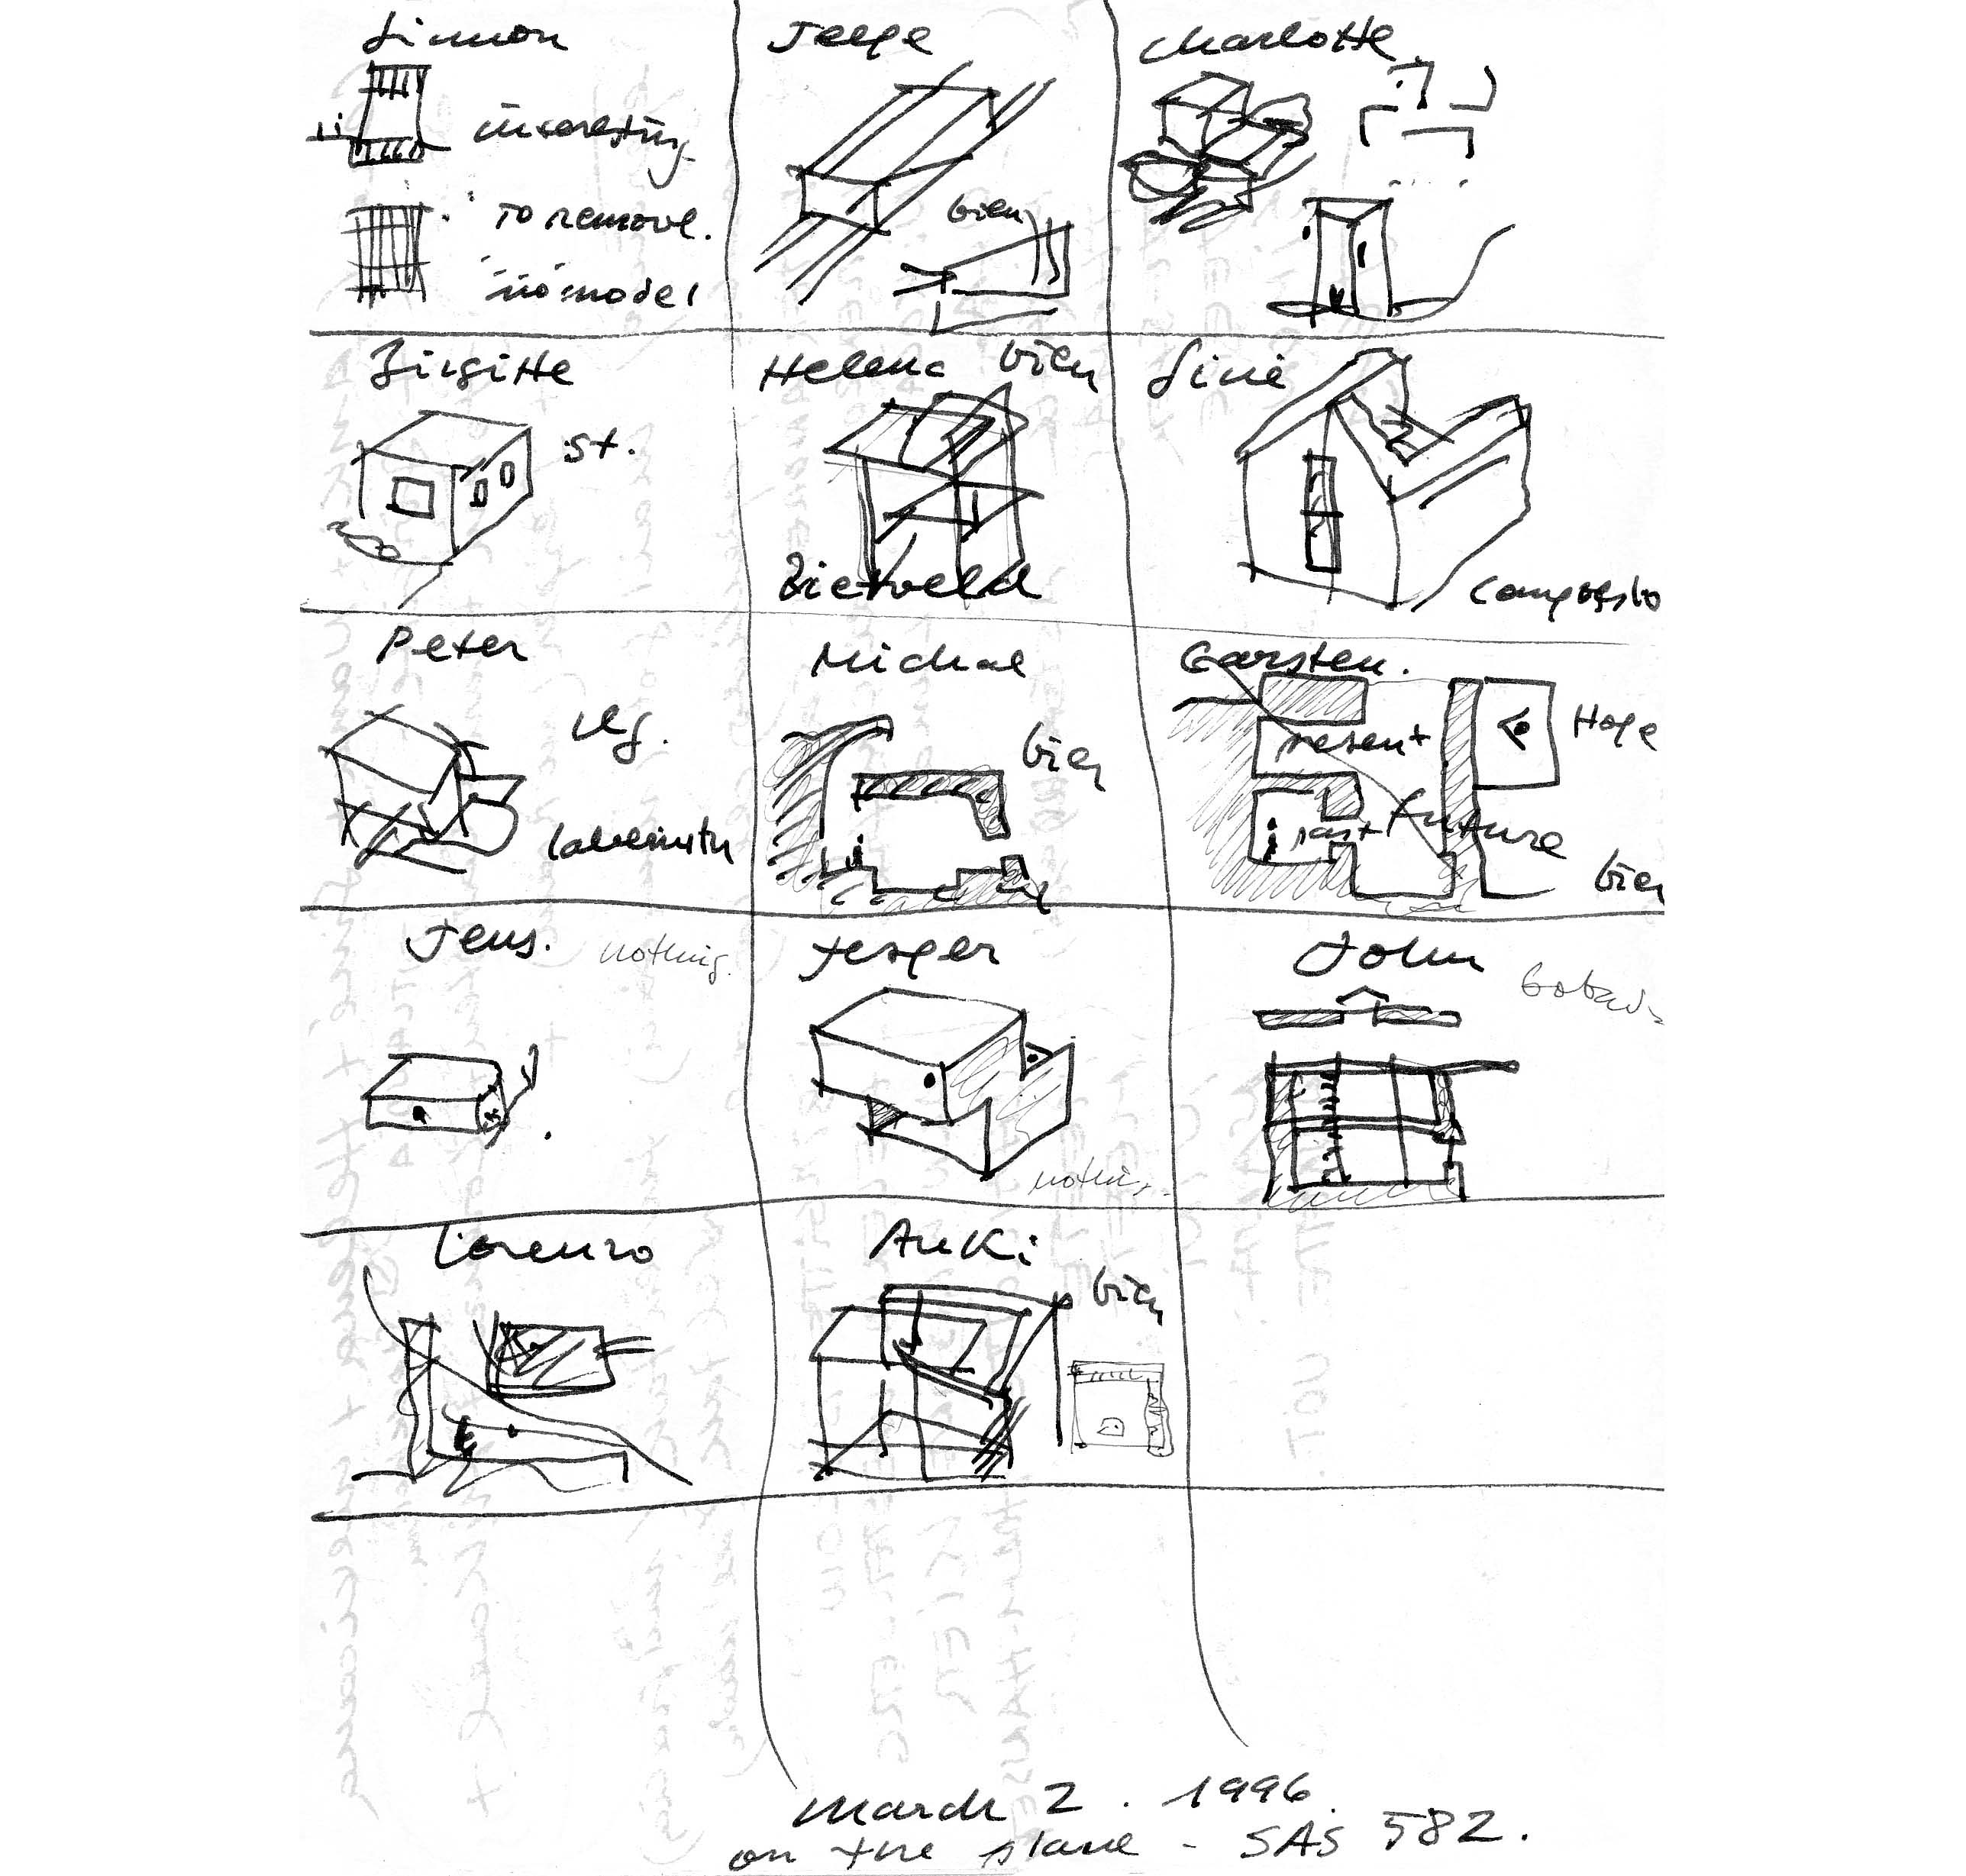 Simon
Jeppe
Charlotte
interesting
to remove.
no model
bien
Birgitte
Helena bien
Sine
st.
Rietveld
Peter
Michael
Carsten.
bien
present
Hope
past
future
laberinth
bien
Jens. nothing.
Jesper
John
nothing.
Lorenzo
Anki
bien
March 2. 1996.
on the plane - SAS 582.